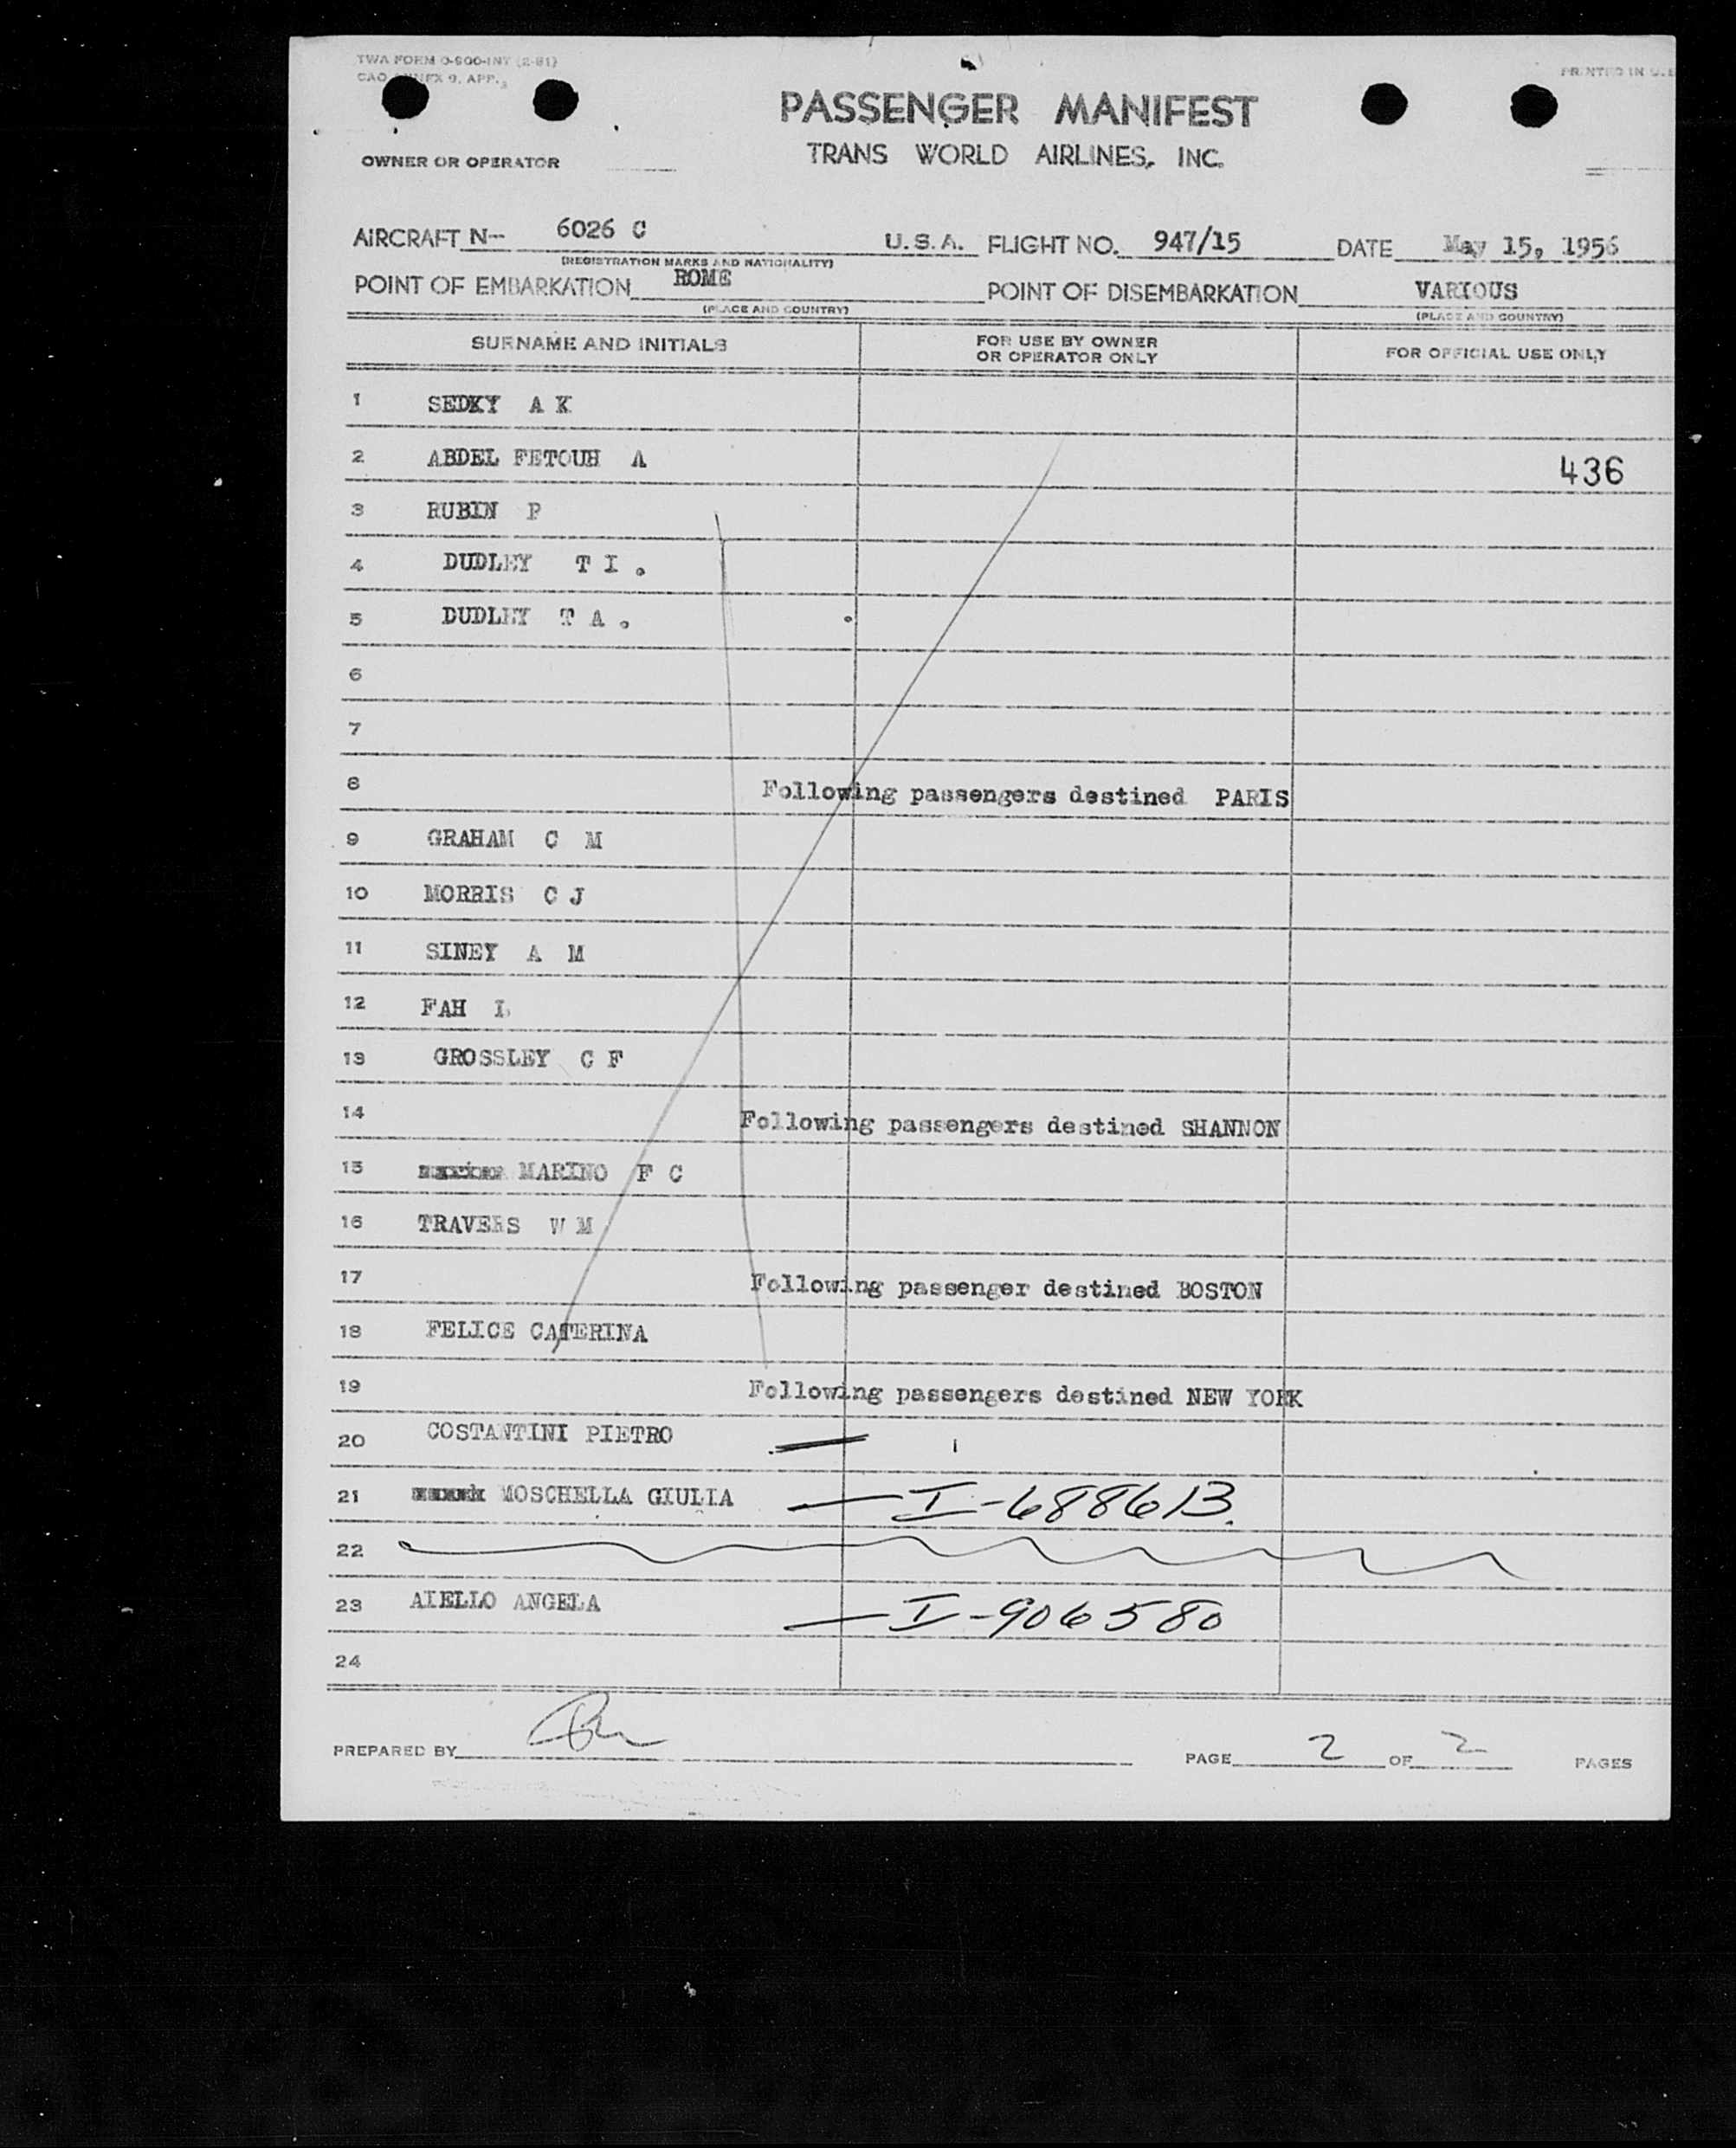 TWA FORM O-900-INT (2-51)
CAO ANNEX 9, APP. 3
PRINTED IN U.S
PASSENGER MANIFEST
TRANS WORLD AIRLINES, INC.
OWNER OR OPERATOR
AIRCRAFT N— 6026 C U.S.A. FLIGHT NO. 947/15 DATE May 15, 1956
(REGISTRATION MARKS AND NATIONALITY)
POINT OF EMBARKATION ROME POINT OF DISEMBARKATION VARIOUS
(PLACE AND COUNTRY) (PLACE AND COUNTRY)
SURNAME AND INITIALS FOR USE BY OWNER OR OPERATOR ONLY FOR OFFICIAL USE ONLY
1 SEDKY A K
2 ABDEL FETOUH A 436
3 RUBIN P
4 DUDLEY T I.
5 DUDLEY T A.
6
7
8 Following passengers destined PARIS
9 GRAHAM C M
10 MORRIS C J
11 SINEY A M
12 FAH L
13 GROSSLEY C F
14 Following passengers destined SHANNON
15 MARINO F C
16 TRAVERS W M
17 Following passenger destined BOSTON
18 FELICE CATERINA
19 Following passengers destined NEW YORK
20 COSTANTINI PIETRO
21 MOSCHELLA GIULIA — I-688613.
22
23 AIELLO ANGELA — I-906580
24
PREPARED BY PAGE 2 OF 2 PAGES